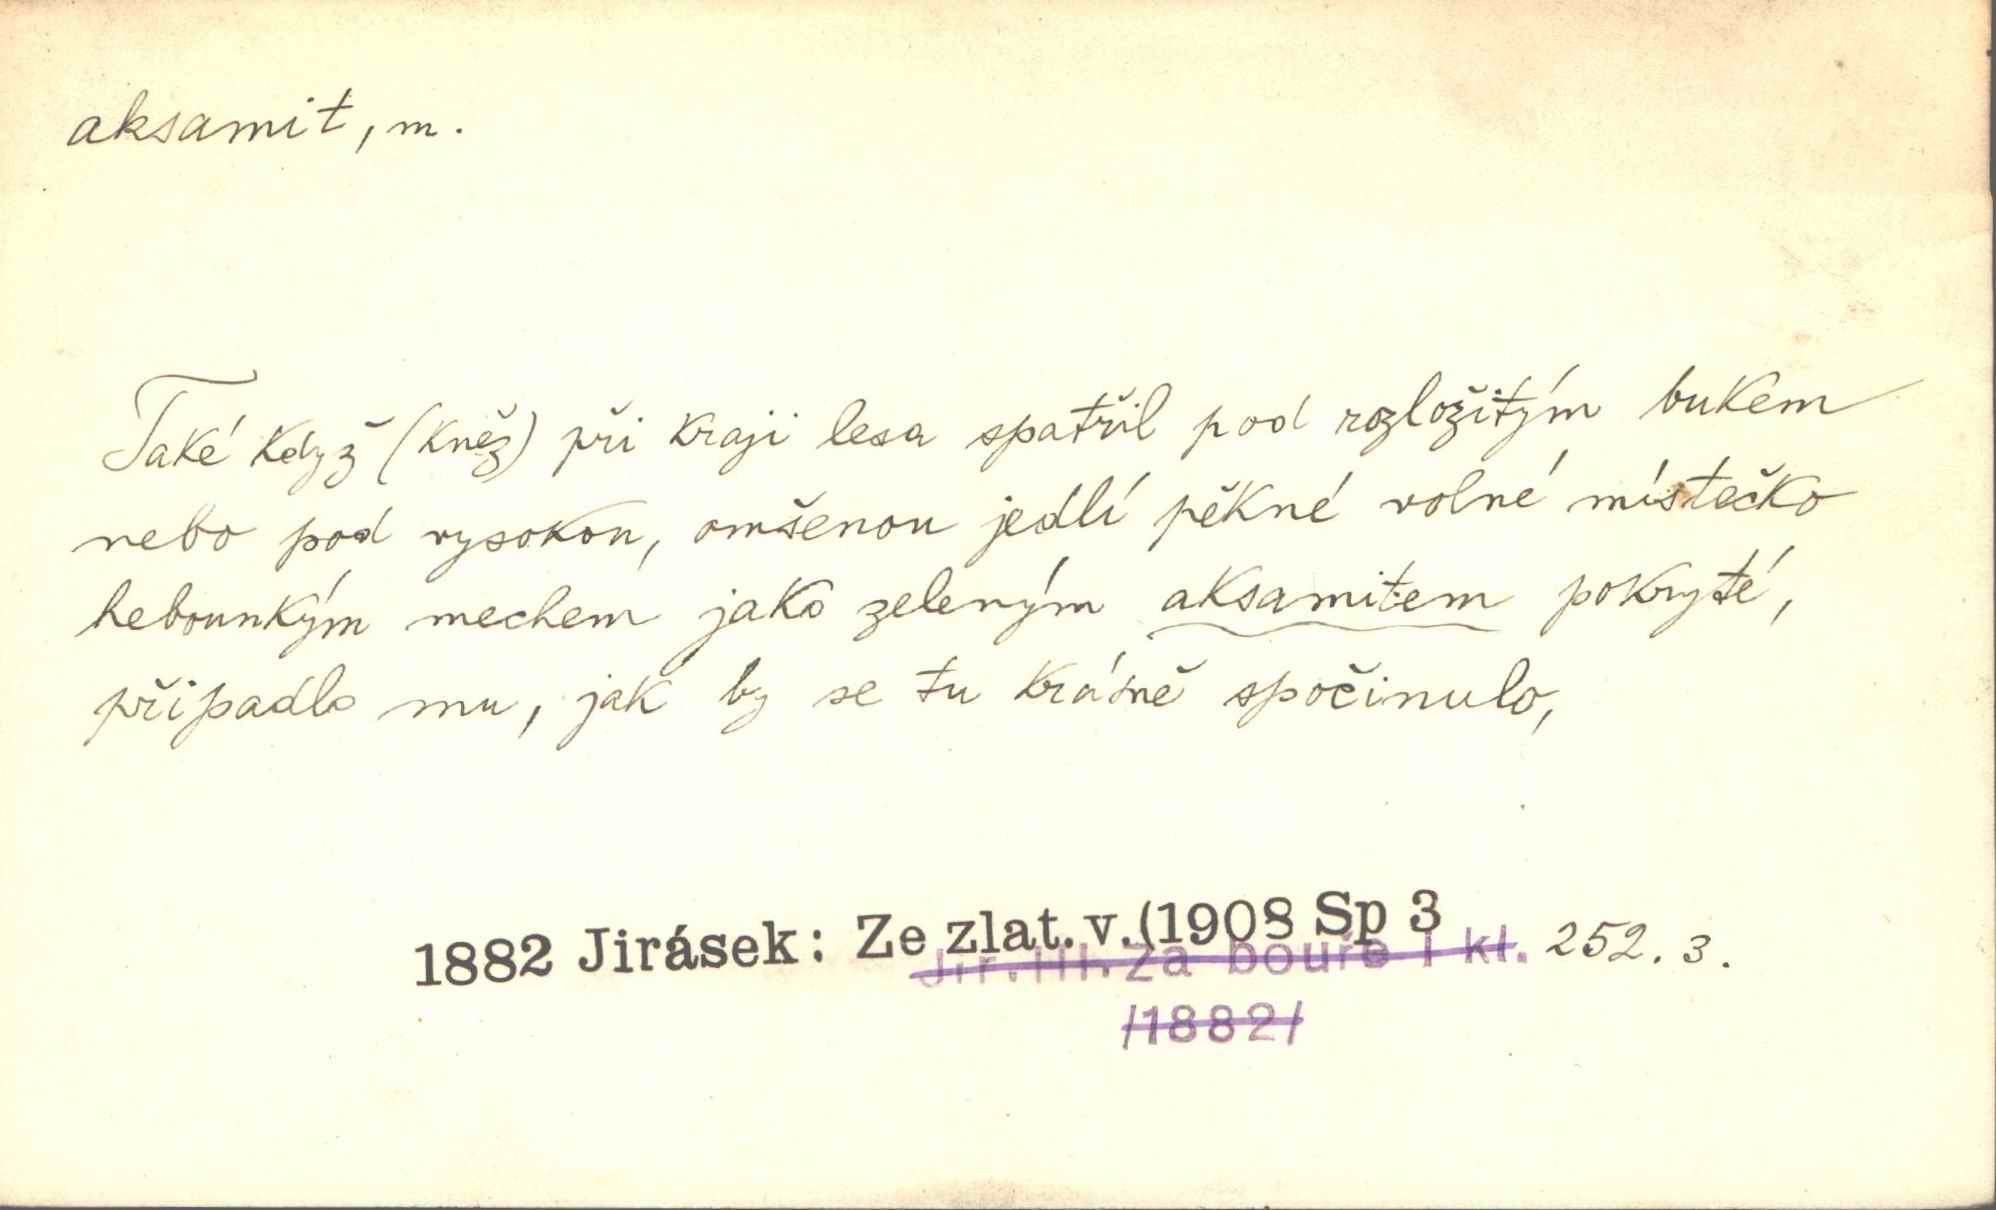 aksamit, m.
Také když (kněz) při kraji lesa spatřil pod rozložitým bukem
nebo pod vysokou, omšenou jedlí pěkné volné místečko
hebounkým mechem jako zeleným aksamitem pokryté,
připadlo mu, jak by se tu krásně spočinulo,
1882 Jirásek: Ze zlat. v. (1908 Sp 3
Jir. III. Za bouře I kl. 252. 3.
/1882/